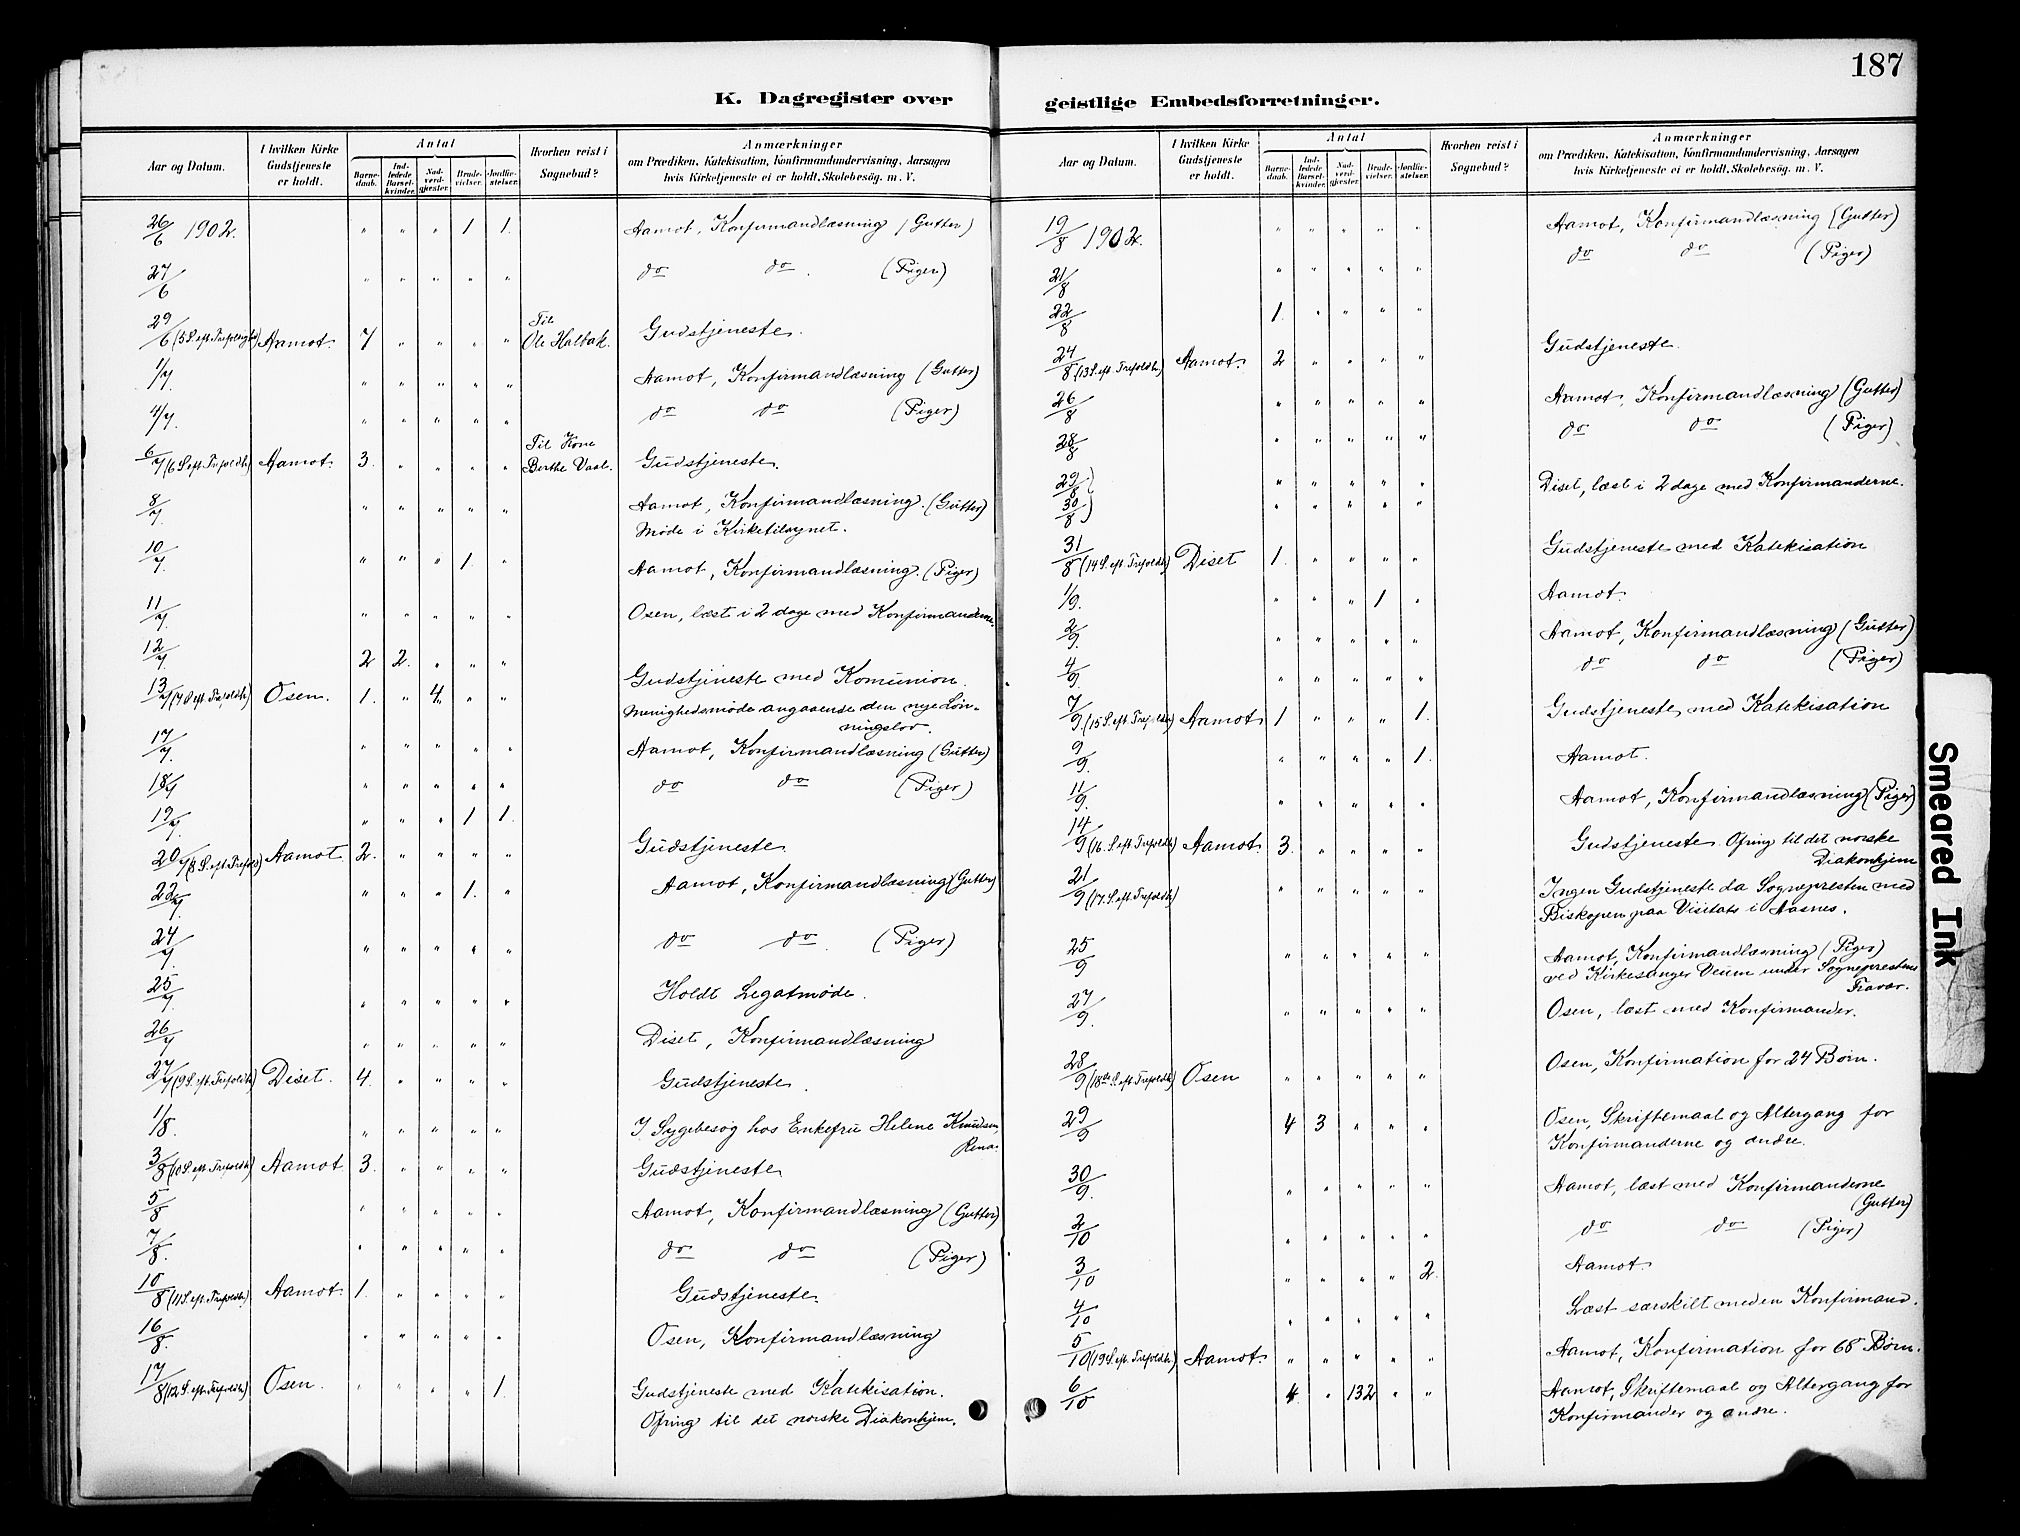 187
K. Dagregister over geistlige Embedsforretninger.
Aar og Datum.
I hvilken Kirke Gudstjeneste er holdt.
Antal
Barnedaab.
Indledede Barselkvinder.
Nadverdgjester.
Brudevielser.
Jordfæstelser.
Hvorhen reist i Sognebud?
Anmærkninger
om Prædiken, Katekisation, Konfirmandundervisning, Aarsagen
hvis Kirketjeneste ei er holdt, Skolebesøg. m. V.
26/6 1902. " " " 1 1. Aamot, Konfirmandlæsning (Gutter)
27/6 " " " " " do do. (Piger)
29/6 (5 S. eft. Trefoldigh) Aamot. 7 " " " " Til Ole Halbak. Gudstjeneste.
1/7. " " " " " Aamot, Konfirmandlæsning (Gutter)
4/7. " " " " " do do (Piger)
6/7 (6 S. eft. Trefoldh) Aamot. 3. " " " " Til Kone Berthe Vaal. Gudstjeneste.
8/7 " " " " " Aamot, Konfirmandlæsning. (Gutter)
Møde i Kirketilsynet.
10/7. " " " 1. " Aamot, Konfirmandlæsning. (Piger)
11/7. " " " " " Osen, læst i 2 dage med Konfirmanderne.
12/7 2 2. " " "
13/7 (7 S. eft. Trefoldh) Osen. 1. " 4 " " Gudstjeneste med Komunion.
Menighedsmøde angaaende den nye Løn-
ningslov.
17/7. " " " " " Aamot, Konfirmandlæsning (Gutter)
18/7 " " " " " do do (Piger)
19/7. " " " 1 1.
20/7 (8 S. eft. Trefold) Aamot 2. " " " " Gudstjeneste.
22/7. " " " 1. " Aamot, Konfirmandlæsning (Gutter)
24/7. " " " " " do do. (Piger)
25/7 " " " " " Holdt Legatmøde.
26/7 " " " " " Diset, Konfirmandlæsning
27/7 (9 S. eft. Trefoldh) Diset. 4. " " " " Gudstjeneste.
1/8. " " " " " I Sygebesøg hos Enkefru Helene Knudsen,
Rena.
3/8 (10 S. eft. Trefoldh) Aamot 3. " " " " Gudstjeneste
5/8 " " " " " Aamot, Konfirmandlæsning (Gutter)
7/8. " " " " " do do (Piger)
10/8 (11 S. eft. Trefoldh.) Aamot. 1. " " " " Gudstjeneste.
16/8. " " " " " Osen, Konfirmandlæsning
17/8 (12 S. eft. Trefoldh) Osen. " " " " 1. Gudstjeneste med Katekisation.
Ofring til det norske Diakonhjem.
Aar og Datum.
I hvilken Kirke Gudstjeneste er holdt.
Antal
Barnedaab.
Indledede Barselkvinder.
Nadverdgjester.
Brudevielser.
Jordfæstelser.
Hvorhen reist i Sognebud?
Anmærkninger
om Prædiken, Katekisation, Konfirmandundervisning, Aarsagen
hvis Kirketjeneste ei er holdt, Skolebesøg. m. V.
19/8 1902. " " " " " Aamot, Konfirmandlæsning (Gutter)
21/8 " " " " " do do (Piger)
22/8 1. " " " "
24/8 (13 S. eft. Trefoldh.) Aamot. 2 " " " " Gudstjeneste.
26/8 " " " " " Aamot, Konfirmandlæsning (Gutter)
28/8 " " " " " do do (Piger)
29/8) " " " " " Diset, læst i 2 dage med Konfirmanderne.
30/8) " " " " "
31/8 (14 S. eft. Trefoldh) Diset 1. " " " " Gudstjeneste med Katekisation
1/9. " " " 1 " Aamot.
2/9. " " " " " Aamot, Konfirmandlæsning (Gutter)
4/9. " " " " " do do (Piger)
7/9. (15 S. eft. Trefoldh) Aamot 1 " " " 1. Gudstjeneste med Katekisation
9/9. " " " " 1. Aamot.
11/9. " " " " " Aamot, Konfirmandlæsning (Piger)
14/9 (16. S. eft. Trefoldh) Aamot. 3. " " " " Gudstjeneste. Ofring til det norske
Diakonhjem
21/9 (17. S. eft. Trefoldh) " " " " " Ingen Gudstjeneste da Sognepresten med
Biskopen paa Visitats i Aasnes.
25/9 " " " " " Aamot, Konfirmandlæsning (Piger)
ved Kirkesanger Veum under Sogneprestens
Fravær.
27/9. " " " " " Osen, læst med Konfirmander.
28/9 (18de S. eft. Trefoldh) Osen " " " " " Osen, Konfirmation for 24 Børn.
29/9 4 3 " " " Osen, Skriftemaal og Altergang for
Konfirmanderne og andre.
30/9. " " " " " Aamot, læst med Konfirmanderne
(Gutter)
2/10 " " " " " do do (Piger)
3/10 " " " " 2. Aamot.
4/10 " " " " " Læst særskilt med en Konfirmand.
5/10 (19 S. eft. Trefoldh.) Aamot. " " " " " Aamot, Konfirmation for 68 Børn.
6/10 4. " 132 " " Aamot, Skriftemaal og Altergang for
Konfirmander og andre.
Smeared Ink